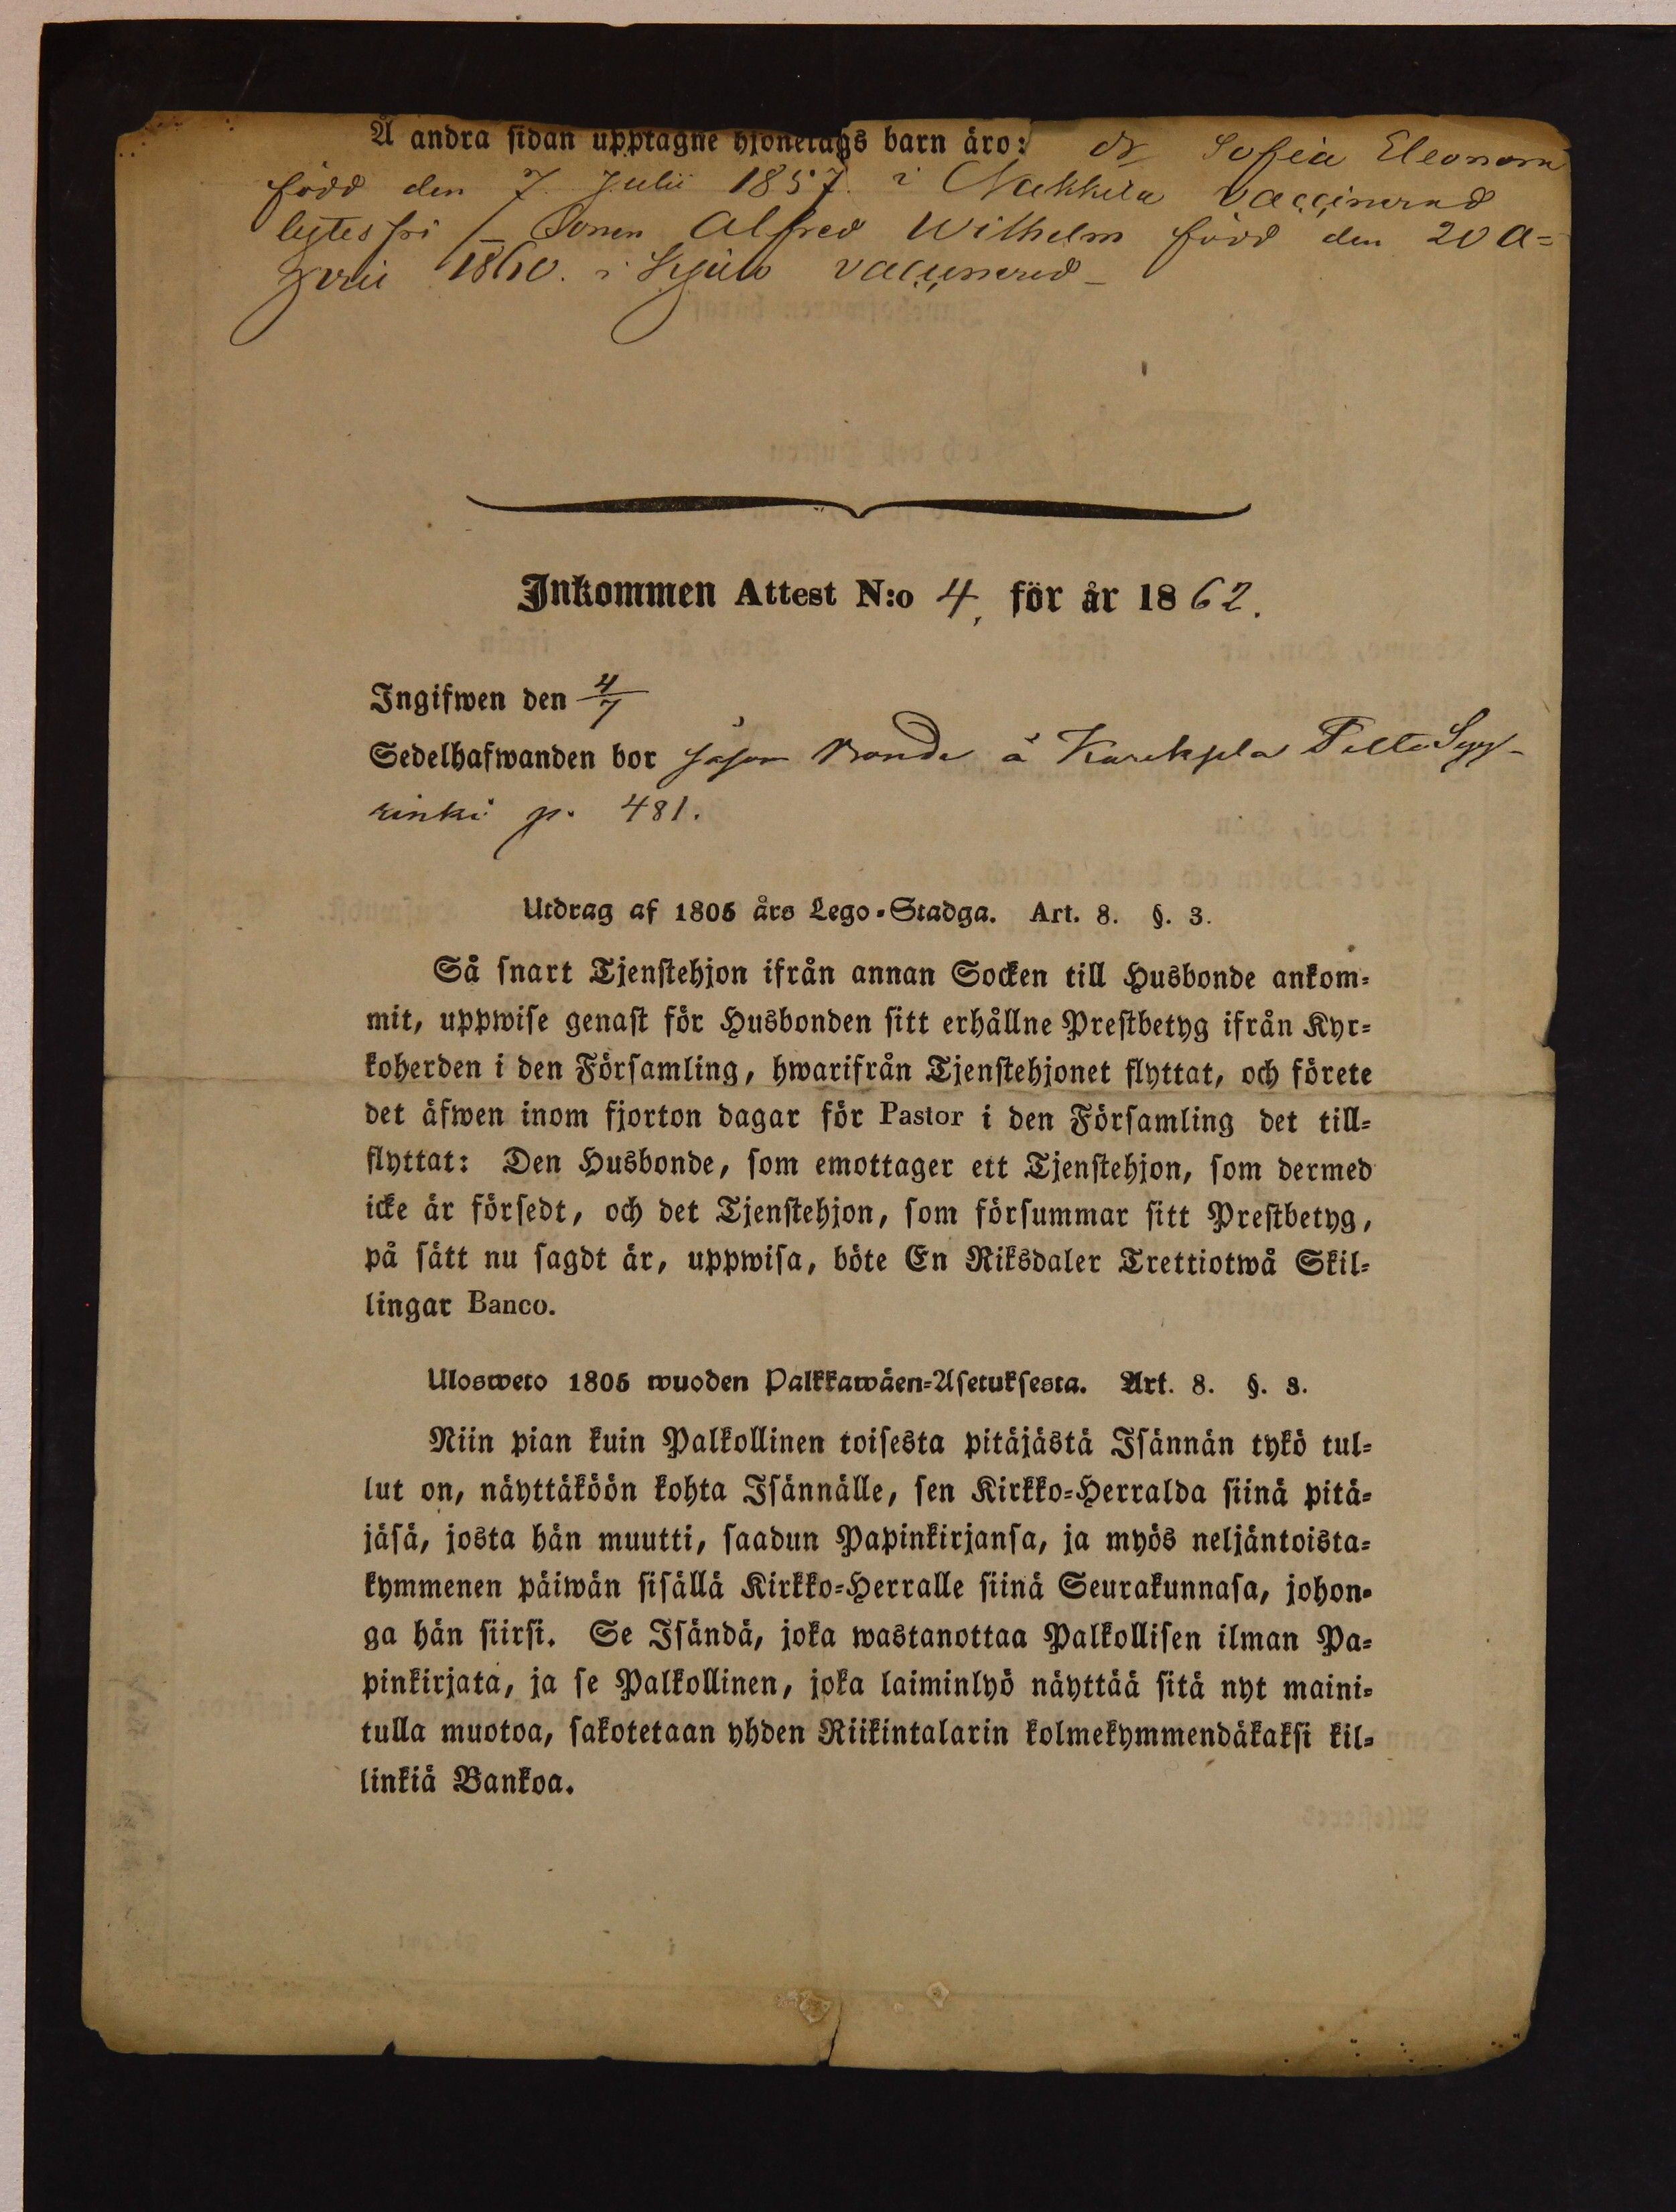 Å andra sidan upptagne hjonelags barn äro: dr Sofia Eleonora
född den 7 Julii 1857. i Nakkila vaccinerad
lytesfri / Sonen Alfred Wilhelm född den 20 A=
prili 1860. i vaccinerad
Inkommen Attest N:o 4, för år 1862.
Ingifwen den 4/7
Sedelhafwanden bor såsom Bonde å Pelto Syy-
rinki p. 481.
Utdrag af 1805 års Lego-Stadga. Art. 8. §. 3.
Så snart Tjenstehjon ifrån annan Socken till Husbonde ankom=
mit, uppwise genast för Husbonden sitt erhållne Prestbetyg ifrån Kyr=
koherden i den Församling, hwarifrån Tjenstehjonet flyttat, och förete
det äfwen inom fjorton dagar för Pastor i den Församling det till=
flyttat: Den Husbonde, som emottager ett Tjenstehjon, som dermed
icke är försedt, och det Tjenstehjon, som försummar sitt Prestbetyg,
på sätt nu sagdt är, uppwisa, böte En Riksdaler Trettiotwå Skil=
lingar Banco.
Ulosweto 1805 wuoden Palkkawäen=Asetuksesta. Art. 8. §. 3.
Niin pian kuin Palkollinen toisesta pitäjästä Isännän tykö tul=
lut on, näyttäköön kohta Isännälle, sen Kirkko=Herralda siinä pitä=
jäsä, josta hän muutti, saadun Papinkirjansa, ja myös neljäntoista=
kymmenen päiwän sisällä Kirkko=Herralle siinä Seurakunnasa, johon=
ga hän siirsi. Se Isändä, joka wastanottaa Palkollisen ilman Pa=
pinkirjata, ja se Palkollinen, joka laiminlyö näyttää sitä nyt maini=
tulla muotoa, sakotetaan yhden Riikintalarin kolmekymmendäkaksi kil=
linkiä Bankoa.